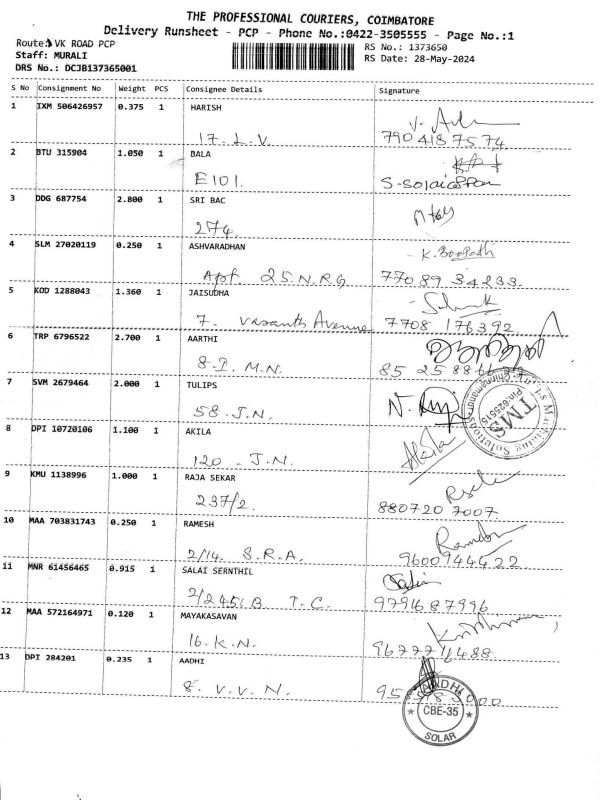 THE PROFESSIONAL COURIERS, COIMBATORE
Delivery Runsheet - PCP - Phone No.:0422-3505555 - Page No.:1
Route: VK ROAD PCP
Staff: MURALI
DRS No.: DCJB137365001
RS No.: 1373650
RS Date: 28-May-2024
S No Consignment No Weight PCS Consignee Details Signature
1 IXM 506426957 0.375 1 HARISH
17. L.V. 7904187574
2 BTU 315904 1.050 1 BALA
E101.
3 DDG 687754 2.800 1 SRI BAC
274.
4 SLM 27020119 0.250 1 ASHVARADHAN K. Boopathi
25. N.R.G 77089 34233.
5 KOD 1288043 1.360 1 JAISUDHA
7. Vasanth Avenue 7708 176392
6 TRP 6796522 2.700 1 AARTHI
8. I. M.N. 85 258
7 SVM 2679464 2.000 1 TULIPS
58. J.N.
TMS
Pin:625515
8 DPI 10720106 1.100 1 AKILA Akila
120. J.N.
9 KMU 1138996 1.000 1 RAJA SEKAR
237/2. 880720 7007
10 MAA 703831743 0.250 1 RAMESH
2/14. S.R.A. 9600944422
11 MNR 61456465 0.915 1 SALAI SERNTHIL
2/245. B T.C. 9791687996
12 MAA 572164971 0.120 1 MAYAKASAVAN
16. K.N.
13 DPI 284201 0.235 1 AADHI
8. V.V.N.
AADHI
CBE-35
SOLAR